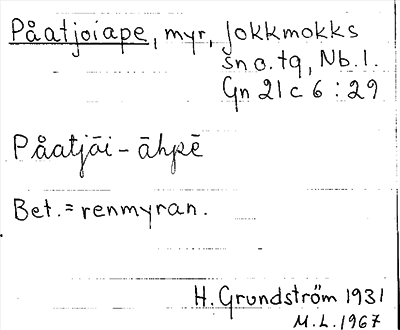 Påatjoiape, myr, Jokkmokks
sn o. tg, Nb. l.
Gn 21 c 6 : 29
Påatjāi - āhpē
Bet. = renmyran.
H. Grundström 1931
M. L. 1967